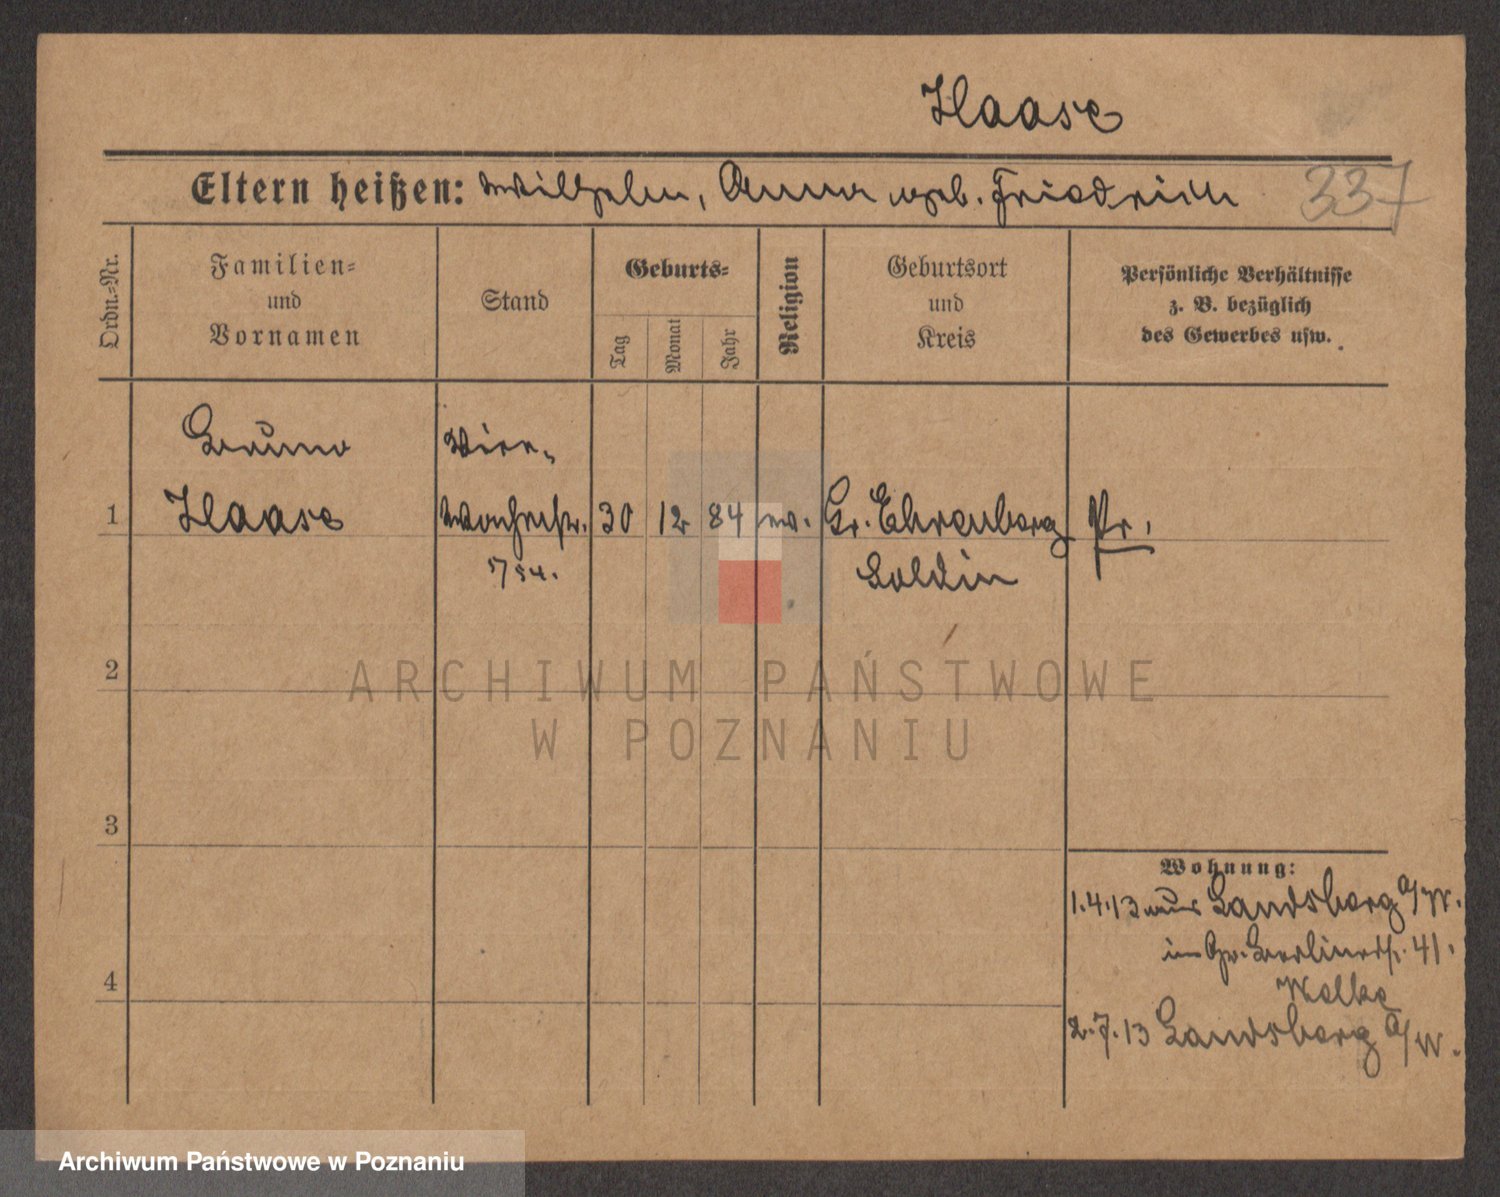 Haase
Eltern heißen: Wilhelm, Anna geb. Friedrich 337
Ordn.-Nr.
Familien-
und
Vornamen
Stand
Geburts-
Tag
Monat
Jahr
Religion
Geburtsort
und
Kreis
Persönliche Verhältnisse
z. B. bezüglich
des Gewerbes usw.
Bruno
1 Haase 30 12 84 ev. Gr. Ehrenberg Pr.
Soldin
2
3
4
Wohnung:
1.4.13 aus Landsberg a/W.
in Gr. Berlinerstr. 41.
Welke
2.7.13 Landsberg a/W.
ARCHIWUM PAŃSTWOWE
W POZNANIU
Archiwum Państwowe w Poznaniu